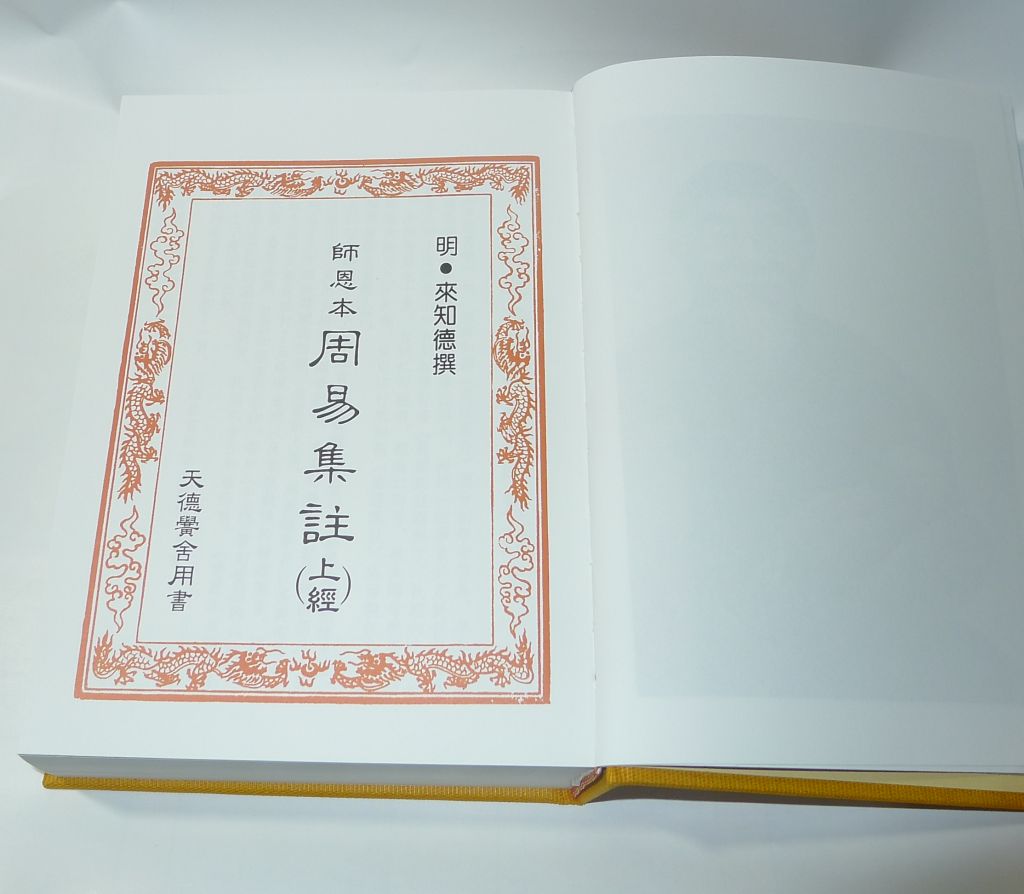 明•來知德撰
師恩本周易集註(上經)
天德黌舍用書